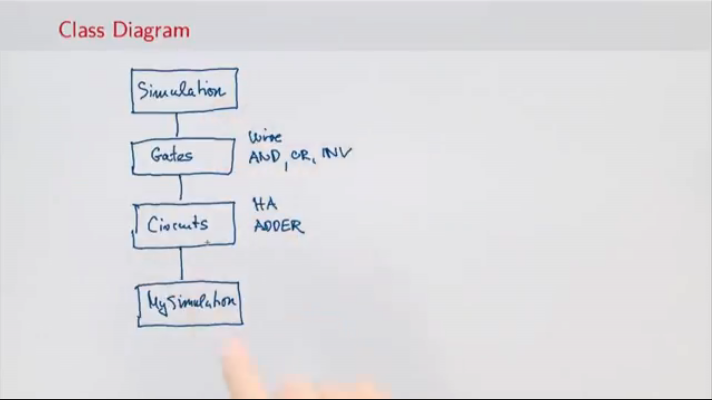 Class Diagram
Simulation
Wire
Gates
AND, OR, INV
HA
Circuits
ADDER
MySimulation